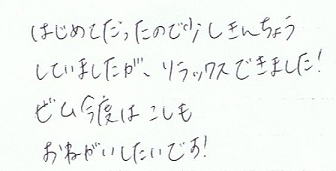 はじめてだったので少しきんちょう
していましたが、リラックスできました!
ぜひ今度はこしも
おねがいしたいです!